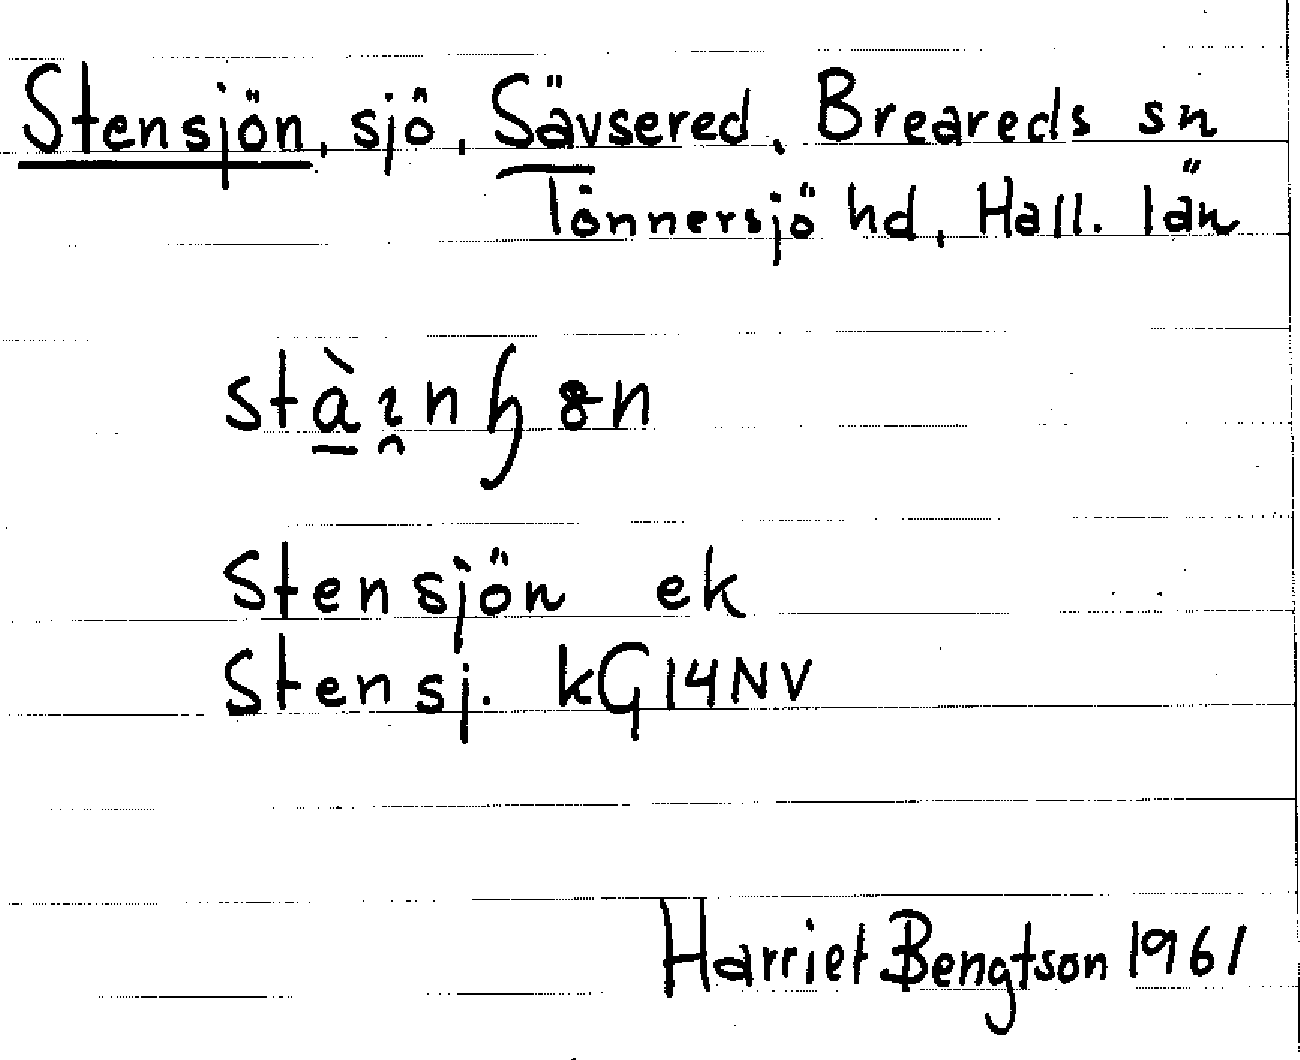 Stensjön, sjö, Sävsered, Breareds sn
Tönnersjö hd, Hall. län
Stensjön ek
Stensj. kG14NV
Harriet Bengtson 1961